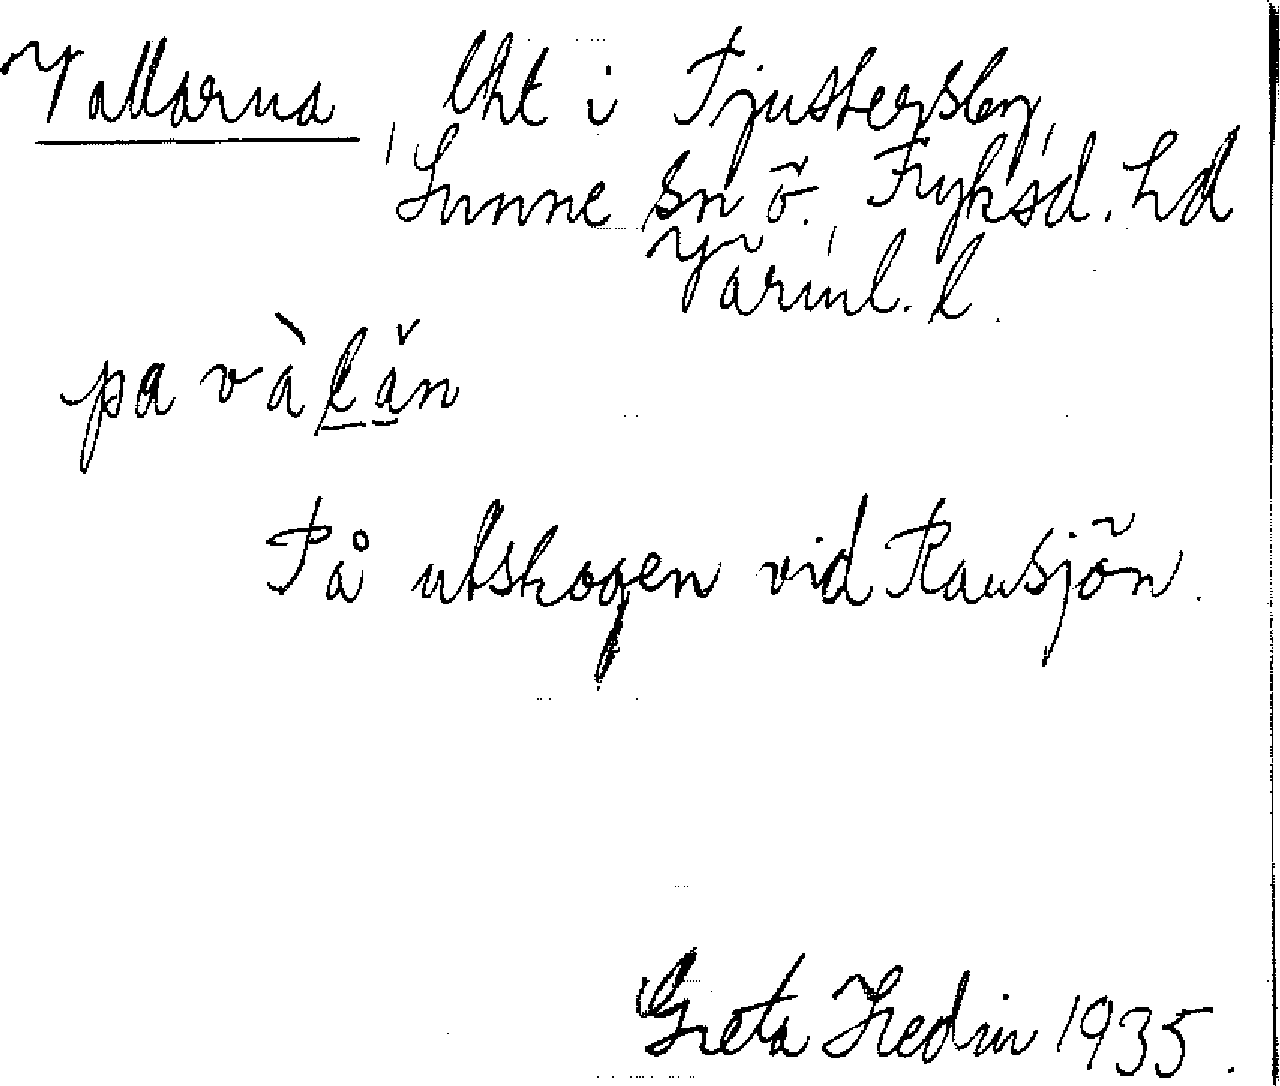 Vallarna, lht i Tjustersby,
Sunne sn ö. Fryksd. hd
Värml. l.
pa vàl̠ǎ̠n
På utskogen vid Rausjön.
Greta Hedin 1935.